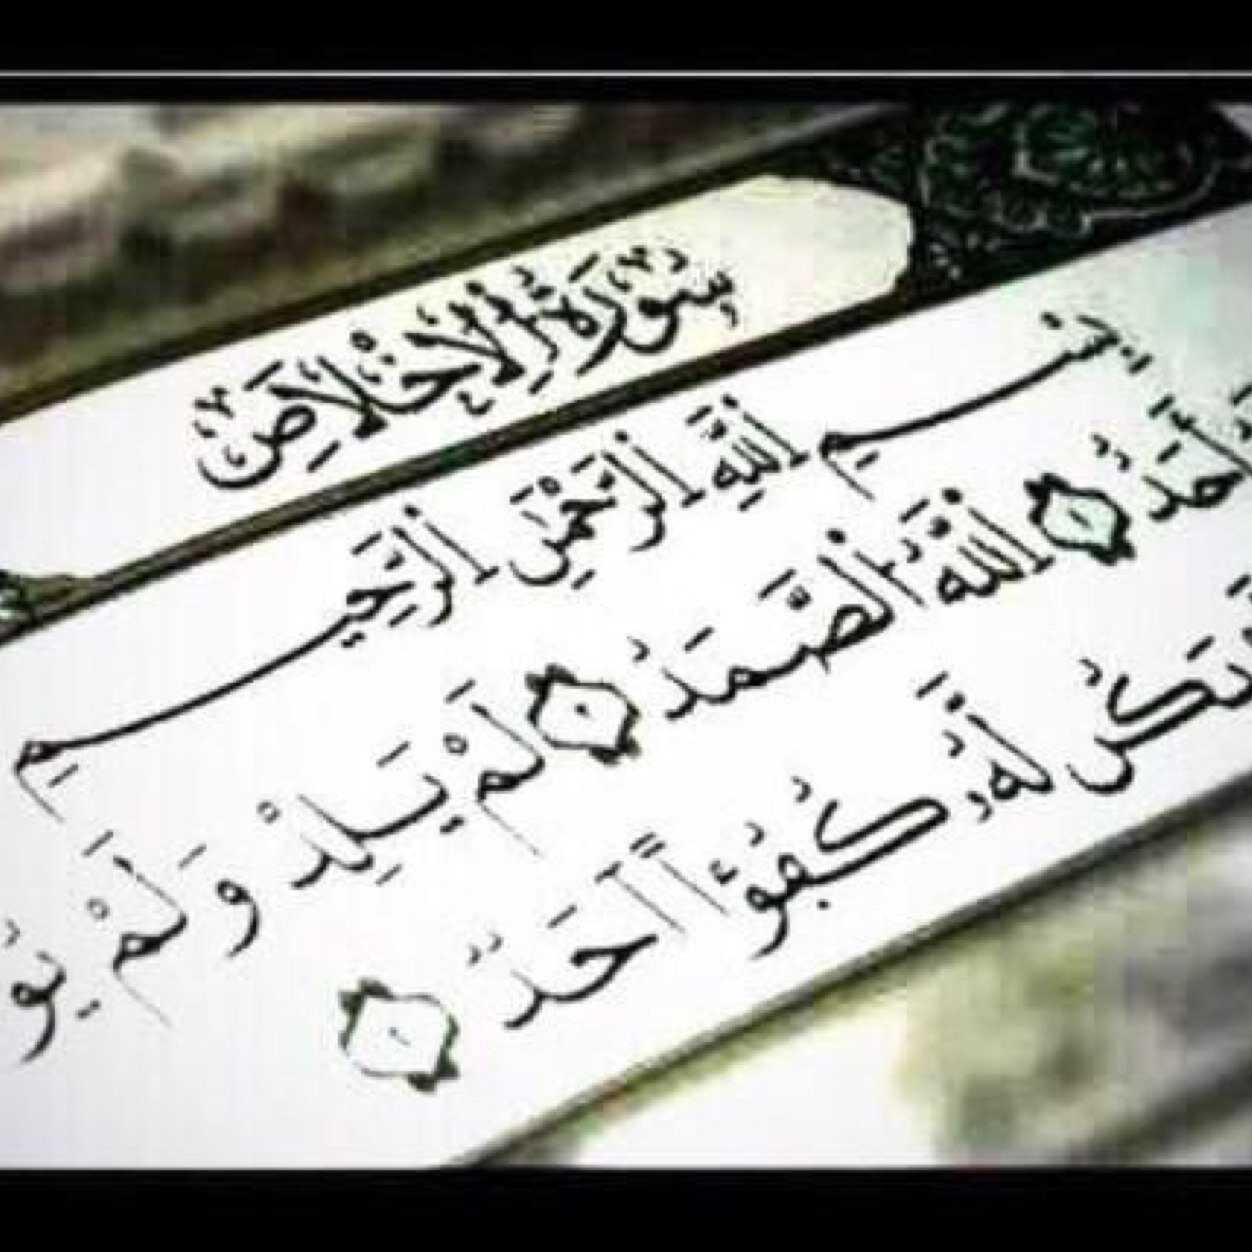 سُورَةُ الْإِخْلَاصِ
بِسْمِ اللَّهِ الرَّحْمَٰنِ الرَّحِيمِ
أَحَدٌ ۝ اللَّهُ الصَّمَدُ ۝ لَمْ يَلِدْ وَلَمْ يُو
يَكُن لَّهُ كُفُوًا أَحَدٌ ۝